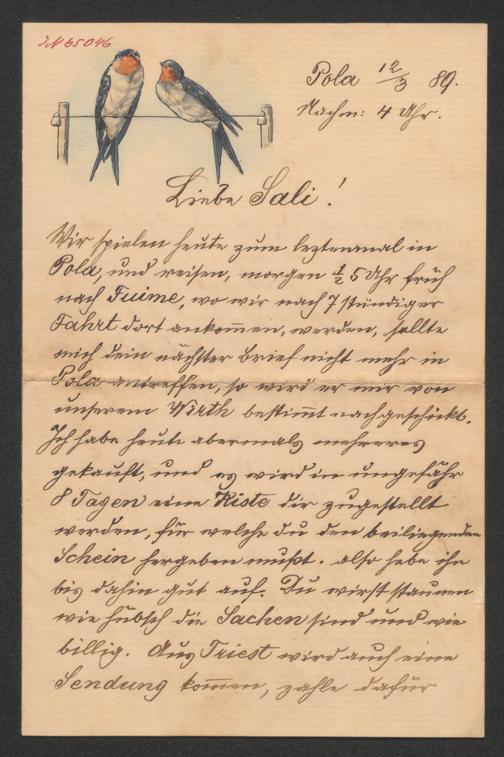 JN 65046
Pola 12/3 89.
Nachm: 4 Uhr.
Liebe Sali!
Wir spielen heute zum leztenmal in
Pola, und reisen, morgen ½ 5 Uhr früh
nach Fuime, wo wir nach 7 stündiger
Fahrt dort ankom̄en, werden, sollte
mich dein nächster Brief nicht mehr in
Pola antreffen, so wird er mir von
unserem Wirth bestim̄t nachgeschickt.
Ich habe heute abermals mehreres
gekauft, und es wird in ungefähr
8 Tagen eine Kiste dir zugestellt
werden, für welche du den beiliegenden
Schein hergeben mußt. also hebe ihn
bis dahin gut auf. Du wirst staunen
wie hübsch die Sachen sind und wie
billig. Aus Triest wird auch eine
Sendung kom̄en, zahle dafür